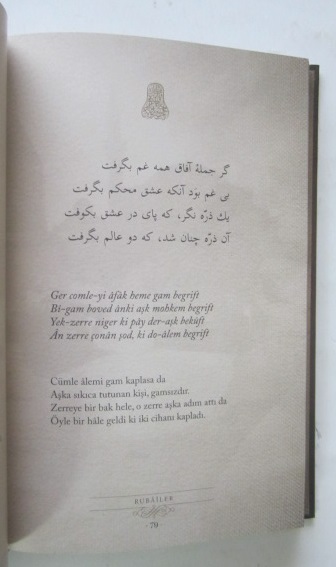 گر جملهٔ آفاق همه غم بگرفت
بی غم بوَد آنکه عشق محکم بگرفت
یك ذرّه نگر، که پای در عشق بکوفت
آن ذره چنان شد، که دو عالم بگرفت
Ger comle-yi âfâk heme gam begrift
Bî-gam boved ânki aşk mohkem begrift
Yek-zerre niger ki pây der-aşk bekûft
Ân zerre çonân şod, ki do-âlem begrift
Cümle âlemi gam kaplasa da
Aşka sıkıca tutunan kişi, gamsızdır.
Zerreye bir bak hele, o zerre aşka adım attı da
Öyle bir hâle geldi ki iki cihanı kapladı.
RUBÂÎLER
· 79 ·